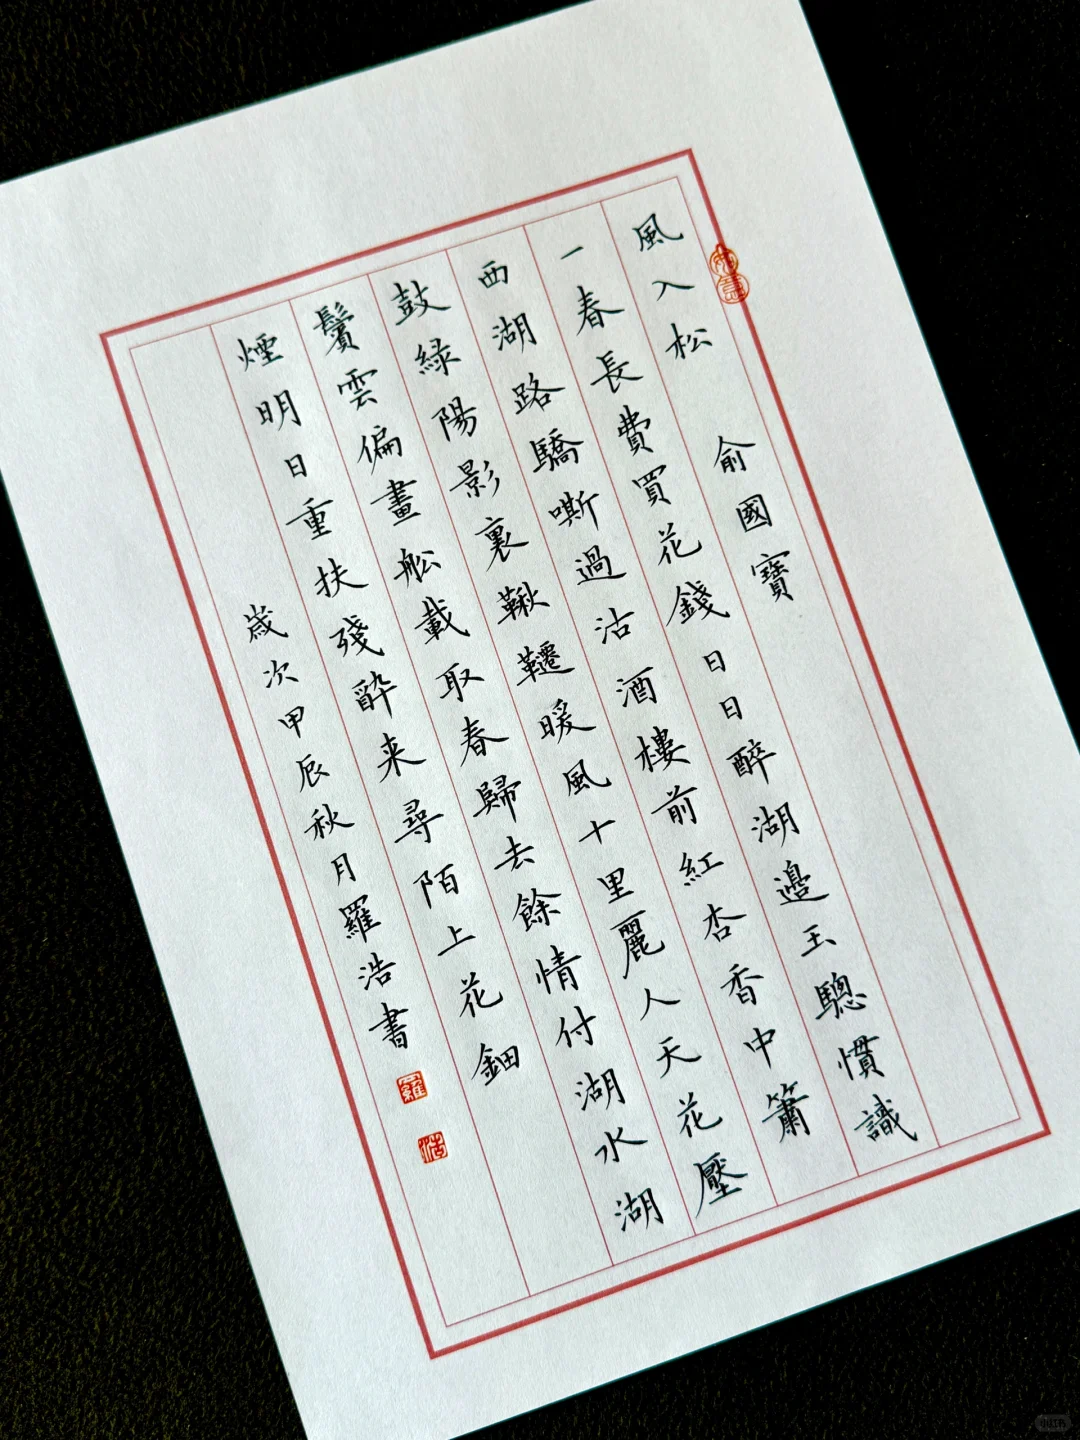 風入松 俞國寶
一春長費買花錢日日醉湖邊玉驄慣識
西湖路驕嘶過沽酒樓前紅杏香中簫
鼓綠陽影裏鞦韆暖風十里麗人天花壓
鬢雲偏畫舩載取春歸去餘情付湖水湖
煙明日重扶殘醉来尋陌上花鈿
歲次甲辰秋月羅浩書
羅
浩
如意
小红书